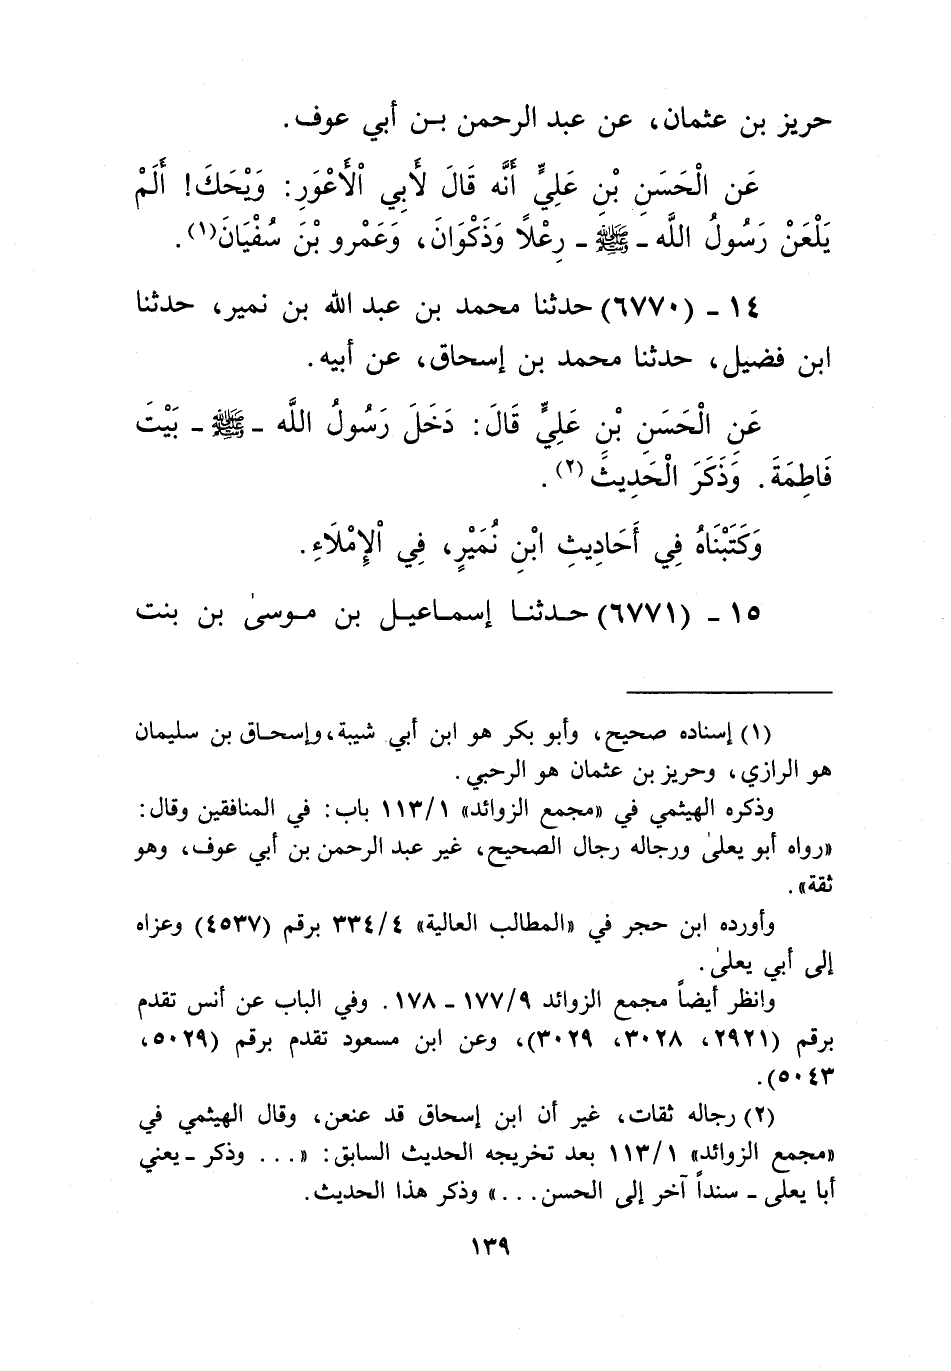 حريز بن عثمان، عن عبد الرحمن بن أبي عوف.
عَنِ الْحَسَنِ بْنِ عَلِيٍّ أَنَّه قَالَ لأَبِي الْأَعْوَرِ: وَيْحَكَ! أَلَمْ
يَلْعَنْ رَسُولُ اللَّه ـ ﷺ ـ رِعْلاً وَذَكْوَانَ، وَعَمْرو بْنَ سُفْيَانَ(١).
١٤ ـ (٦٧٧٠) حدثنا محمد بن عبد الله بن نمير، حدثنا
ابن فضيل، حدثنا محمد بن إسحاق، عن أبيه.
عَنِ الْحَسَنِ بْنِ عَلِيٍّ قَالَ: دَخَلَ رَسُولُ اللَّه ـ ﷺ ـ بَيْتَ
فَاطِمَةَ. وَذَكَرَ الْحَدِيثَ(٢).
وَكَتَبْنَاهُ فِي أَحَادِيثِ ابْنِ نُمَيْرٍ، فِي الْإِمْلَاءِ.
١٥ ـ (٦٧٧١) حدثنا إسماعيل بن موسىٰ بن بنت
(١) إسناده صحيح، وأبو بكر هو ابن أبي شيبة، وإسحاق بن سليمان
هو الرازي، وحريز بن عثمان هو الرحبي.
وذكره الهيثمي في «مجمع الزوائد» ١١٣/١ باب: في المنافقين وقال:
«رواه أبو يعلىٰ ورجاله رجال الصحيح، غير عبد الرحمن بن أبي عوف، وهو
ثقة».
وأورده ابن حجر في «المطالب العالية» ٣٣٤/٤ برقم (٤٥٣٧) وعزاه
إلى أبي يعلىٰ.
وانظر أيضاً مجمع الزوائد ١٧٧/٩ ـ ١٧٨. وفي الباب عن أنس تقدم
برقم (٢٩٢١، ٣٠٢٨، ٣٠٢٩)، وعن ابن مسعود تقدم برقم (٥٠٢٩،
٥٠٤٣).
(٢) رجاله ثقات، غير أن ابن إسحاق قد عنعن، وقال الهيثمي في
«مجمع الزوائد» ١١٣/١ بعد تخريجه الحديث السابق: «... وذكر ـ يعني
أبا يعلى ـ سنداً آخر إلى الحسن...» وذكر هذا الحديث.
١٣٩